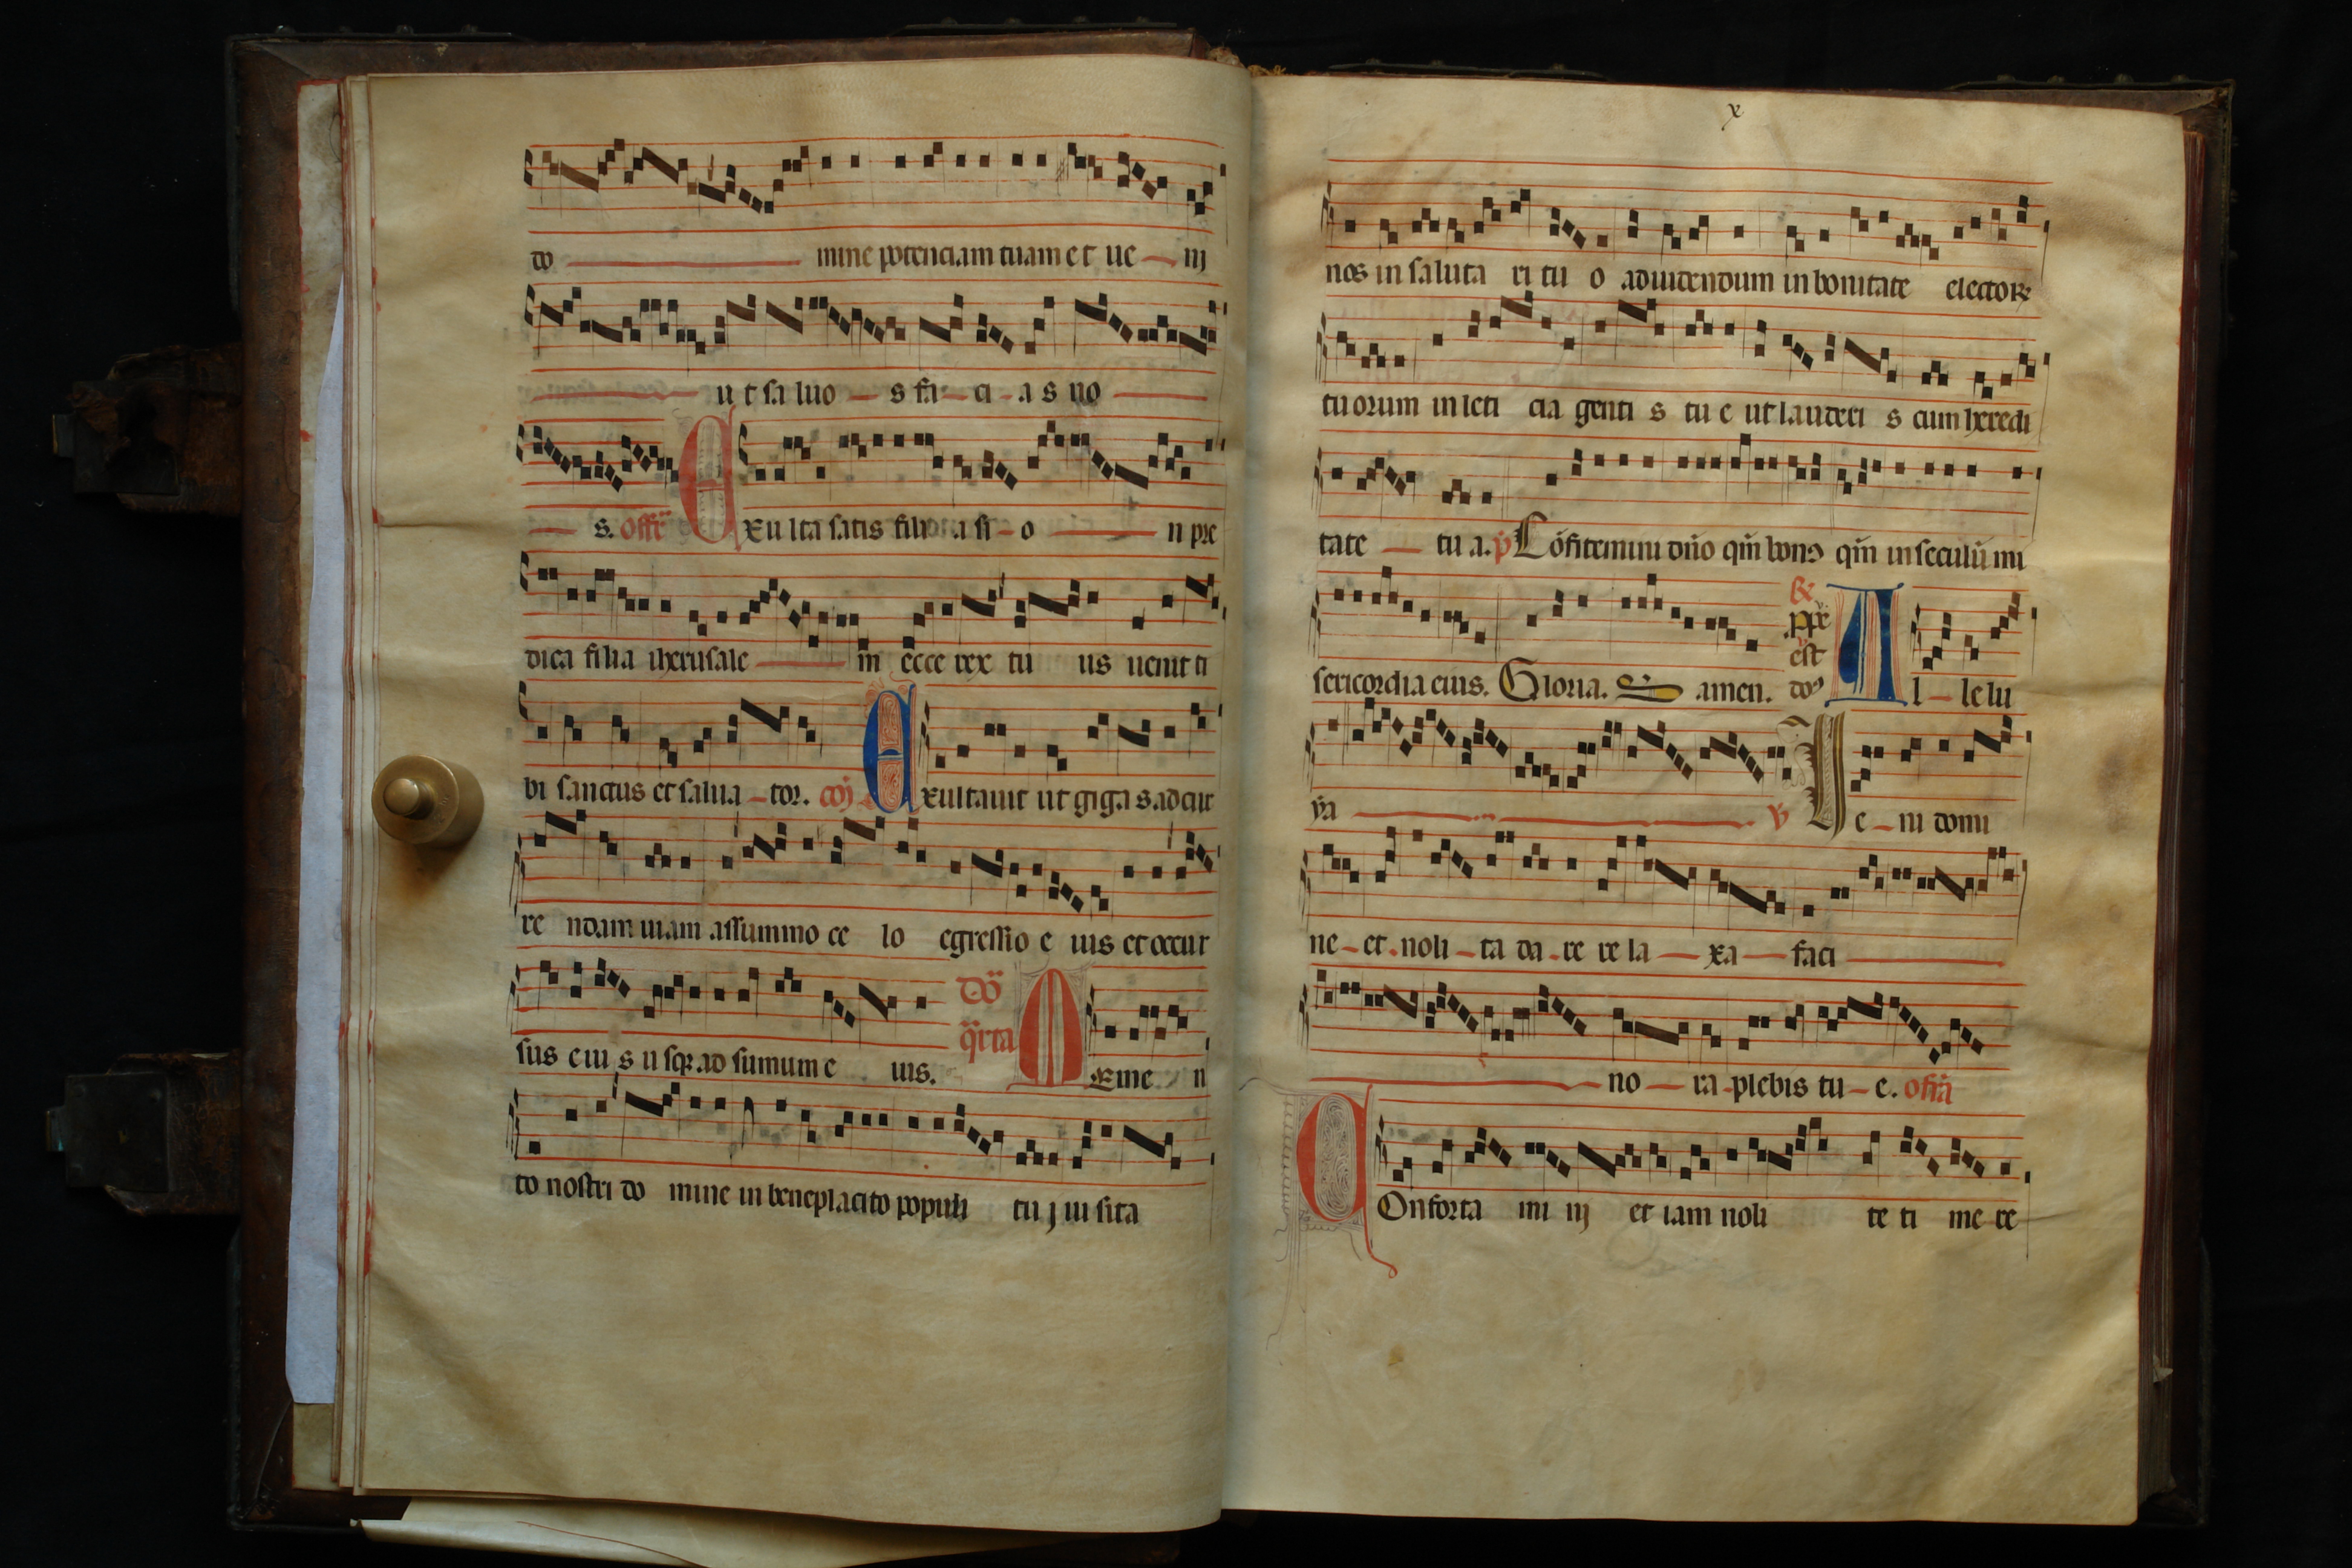 do mine potenciam tuam et ue nj
ut saluo s fa ci as no
s. Offr̄ Exulta satis filia si o n pre
dica filia iherusale m ecce rex tu us uenit ti
bi sanctus et salua tor. cōj Exultauit ut gigas ad cur
re ndam uiam assummo ce lo egressio e ius et occur
sus eius usq; ad summum e ius. Dō
q̄rta Meme n
to nostri do mine in beneplacito populi tuj uisita
x
nos in saluta ri tu o aduidendum in bonitate electoꝝ
tuorum in leti cia genti s tu e ut laudeti s cum heredi
tate tu a. p̄ Cōfitemini dn̄o qm̄ bonꝰ qm̄ in seculū mi
sericordia eius. Gloria. amen. Al lelu
ya v̄ Ue ni domi
ne et noli ta da re re la xa faci
no ra plebis tu e. offr̄a
COnforta mi nj et iam noli te ti me re